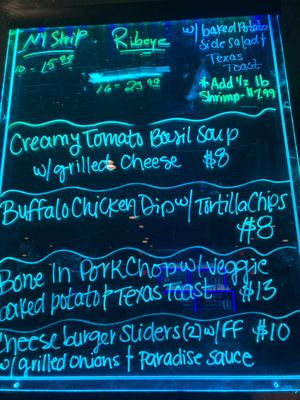 NY Strip Ribeye
w/ baked Potato
Side Salad &
Texas
Toast
* Add 1/2 lb
Shrimp - $7.99
Creamy Tomato Basil Soup
w/ grilled Cheese $8
Buffalo Chicken Dip w/ Tortilla Chips
$8
Bone In Pork Chop w/ Veggie
baked potato & Texas Toast $13
Cheese burger Sliders (2) w/ FF $10
w/ grilled onions & Paradise sauce